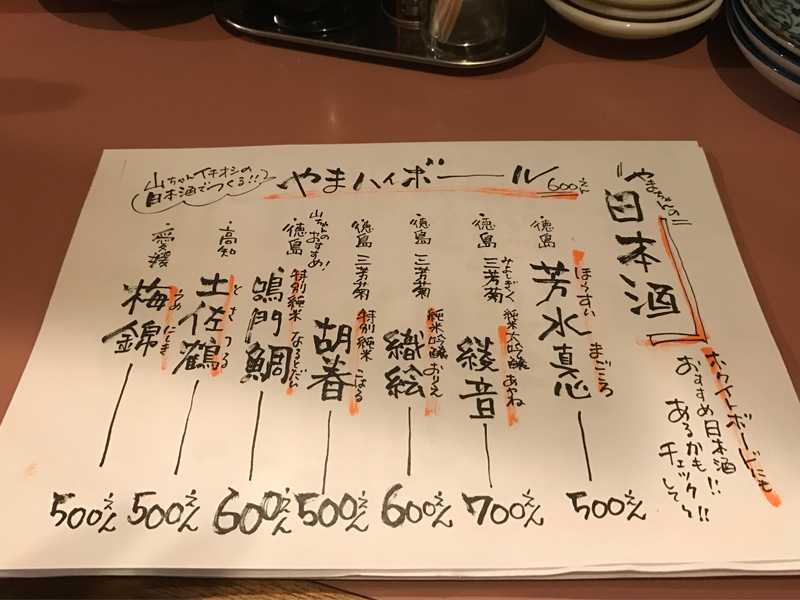 やまちゃんの
日本酒
ホワイトボードにも
おすすめ日本酒
あるかも!!
チェックして!!
やまハイボール 600えん
山ちゃんイチオシの
日本酒でつくる!!
・徳島
芳水 真心
ほうすい まごころ
500えん
・徳島 三芳菊
みよしきく 純米大吟醸 あやね
綾音
700えん
・徳島 三芳菊
純米吟醸 おりえ
織絵
600えん
・徳島 三芳菊
特別純米 こはる
胡春
500えん
山ちゃんのおすすめ!
・徳島
特別純米 なるとだい
鳴門鯛
600えん
・高知
土佐鶴
とさつる
500えん
・愛媛
梅錦
うめにしき
500えん